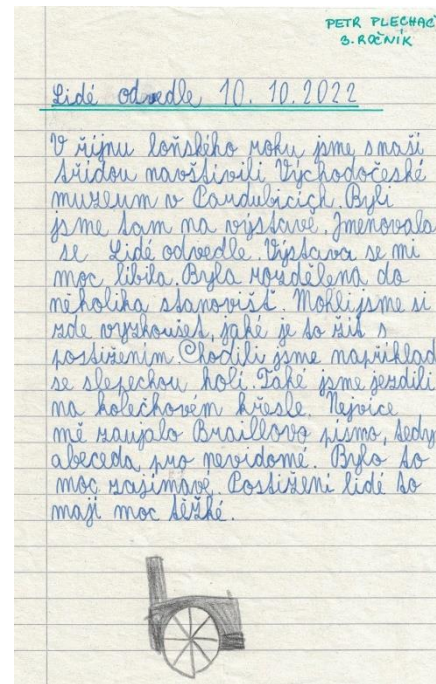 PETR PLECHAČ
3. ROČNÍK
Lidé odvedle 10. 10. 2022
V říjnu loňského roku jsme s naší
třídou navštívili Východočeské
muzeum v Pardubicích. Byli
jsme tam na výstavě. Jmenovala
se Lidé odvedle. Výstava se mi
moc líbila. Byla rozdělena do
několika stanovišť. Mohli jsme si
zde vyzkoušet, jaké je to žít s
postižením Chodili jsme například
se slepeckou holí. Také jsme jezdili
na kolečkovém křesle. Nejvíce
mě zaujalo Braillovo písmo, tedy
abeceda pro nevidomé. Bylo to
moc zajímavé. Postižení lidé to
mají moc těžké.